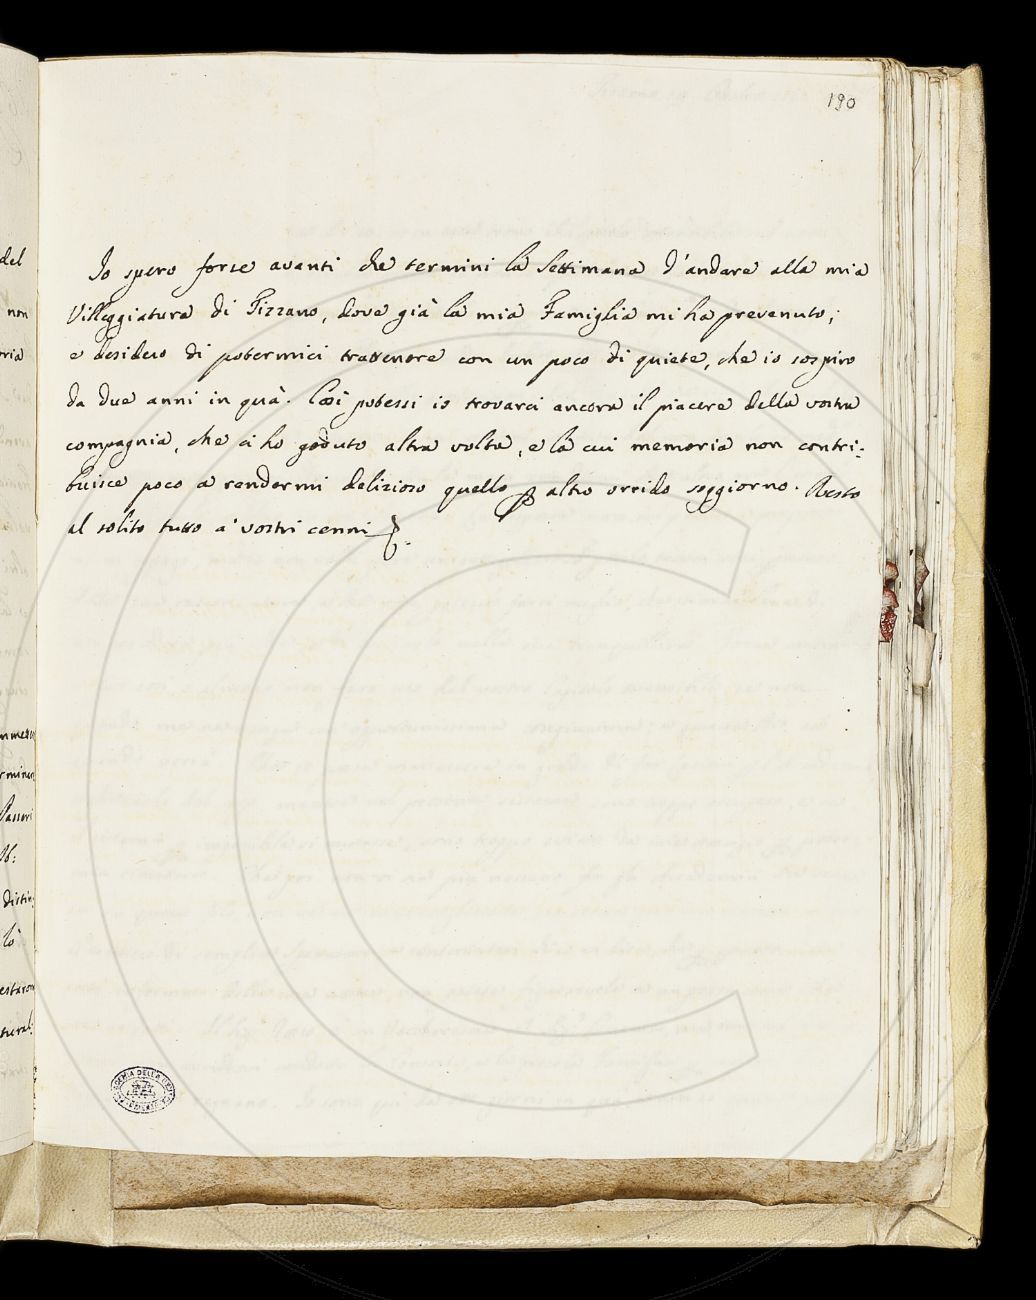 190
Io spero forse avanti che termini la Settimana d'andare alla mia
Villeggiatura di Tizzano, dove già la mia Famiglia mi ha prevenuto;
e desidero di potermici trattenere con un poco di quiete, che io sospiro
da due anni in quà. Così potessi io trovarci ancora il piacere della vostra
compagnia, che ci ho goduto altra volta, e la cui memoria non contri:
buisce poco a rendermi delizioso quello altro orrido soggiorno. Resto
al solito tutto a' vostri cenni
del
non
oria
distin:
lò